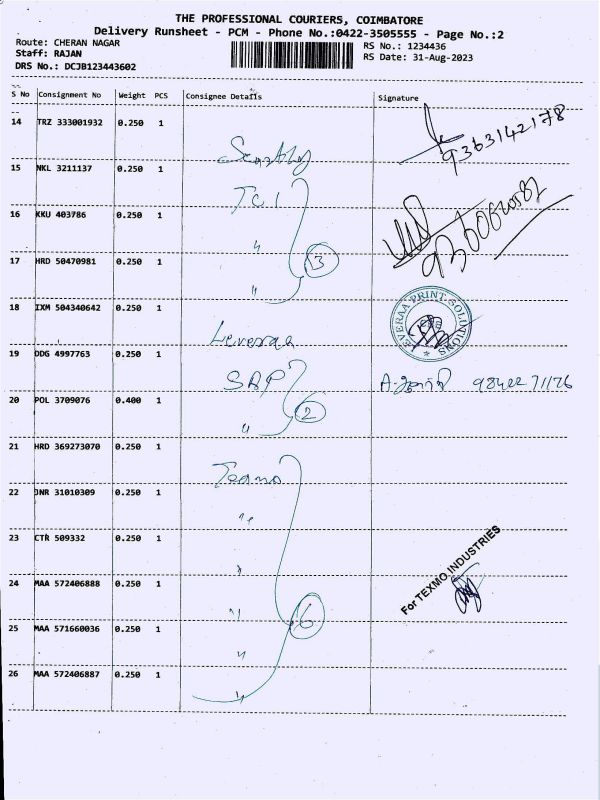 THE PROFESSIONAL COURIERS, COIMBATORE
Delivery Runsheet - PCM - Phone No.:0422-3505555 - Page No.:2
Route: CHERAN NAGAR
Staff: RAJAN
DRS No.: DCJB123443602
RS No.: 1234436
RS Date: 31-Aug-2023
S No Consignment No Weight PCS Consignee Details Signature
14 TRZ 333001932 0.250 1 9363142178
15 NKL 3211137 0.250 1 TCI
16 KKU 403786 0.250 1 "
17 HRD 50470981 0.250 1 " 3
18 IXM 504340642 0.250 1 LEVERAA PRINT SOLUTIONS
19 DDG 4997763 0.250 1 SRP
20 POL 3709076 0.400 1 " 2
21 HRD 369273070 0.250 1
22 JNR 31010309 0.250 1 "
23 CTR 509332 0.250 1 "
24 MAA 572406888 0.250 1 " For TEXMO INDUSTRIES
25 MAA 571660036 0.250 1 " 6
26 MAA 572406887 0.250 1 "